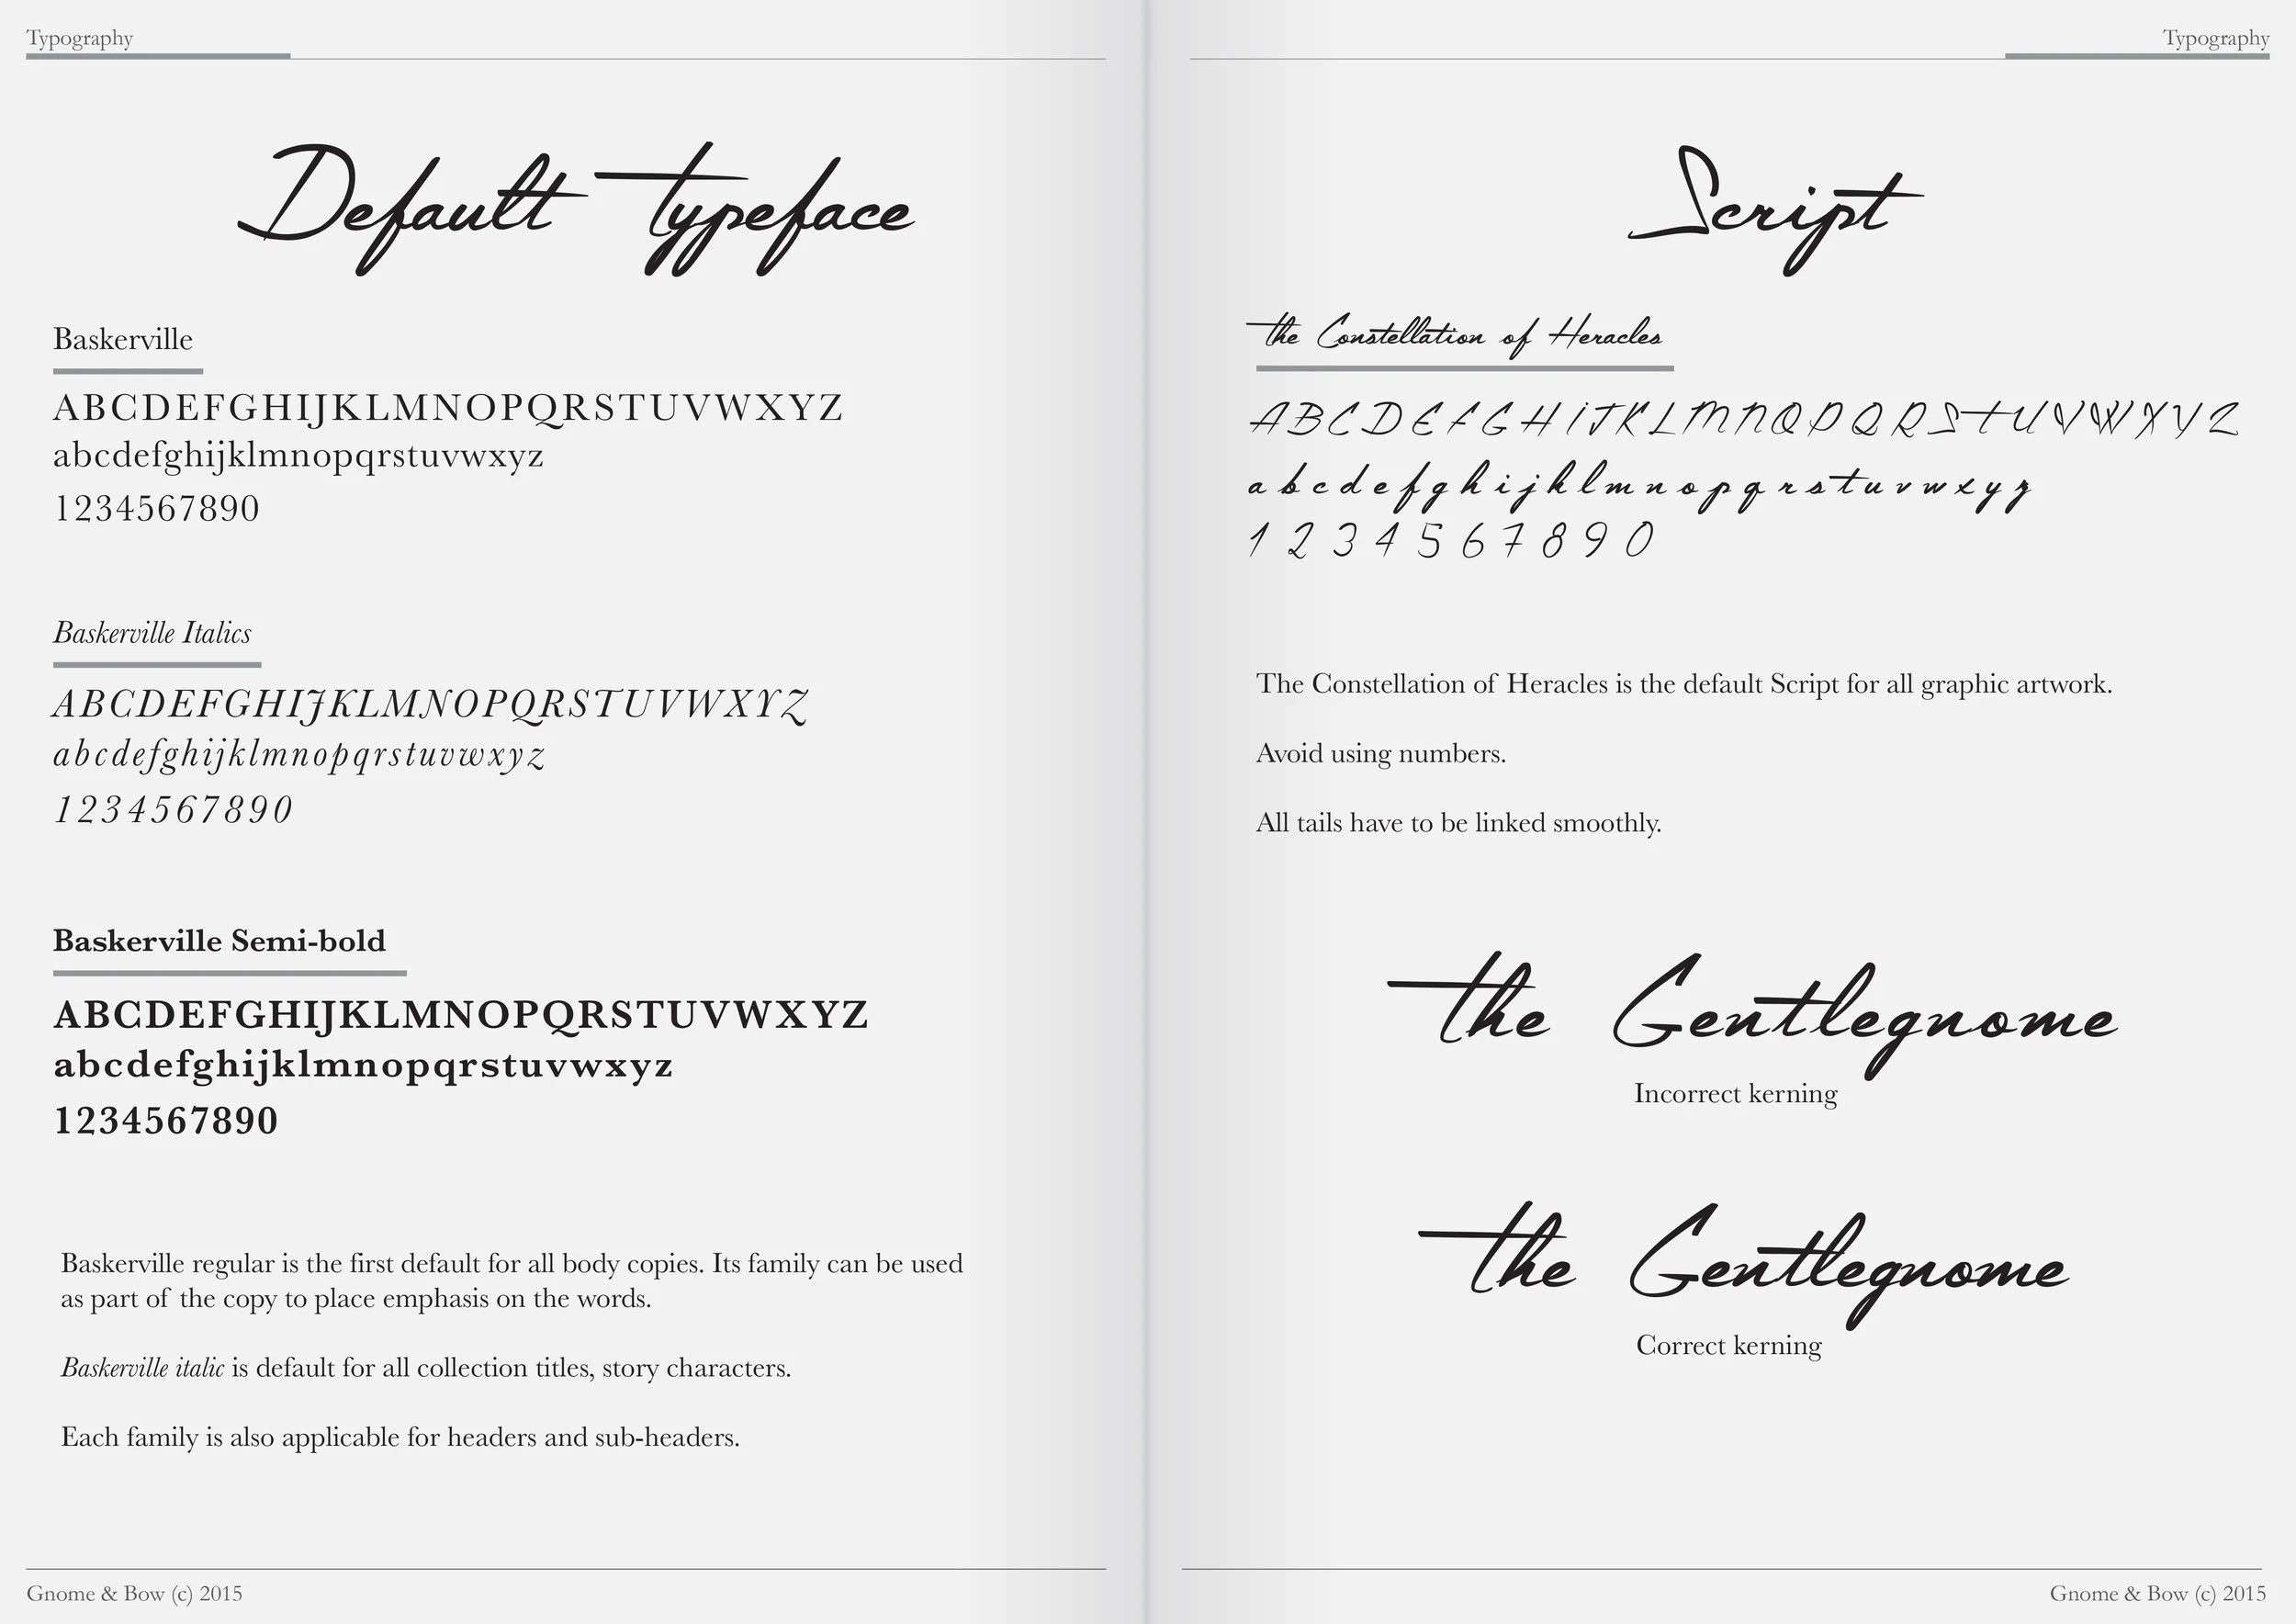 Typography
Default Typeface
Baskerville
ABCDEFGHIJKLMNOPQRSTUVWXYZ
abcdefghijklmnopqrstuvwxyz
1234567890
Baskerville Italics
ABCDEFGHIJKLMNOPQRSTUVWXYZ
abcdefghijklmnopqrstuvwxyz
1234567890
Baskerville Semi-bold
ABCDEFGHIJKLMNOPQRSTUVWXYZ
abcdefghijklmnopqrstuvwxyz
1234567890
Baskerville regular is the first default for all body copies. Its family can be used
as part of the copy to place emphasis on the words.
Baskerville italic is default for all collection titles, story characters.
Each family is also applicable for headers and sub-headers.
Gnome & Bow (c) 2015
Typography
Script
The Constellation of Heracles
A B C D E F G H I J K L M N O P Q R S T U V W X Y Z
a b c d e f g h i j k l m n o p q r s t u v w x y z
1 2 3 4 5 6 7 8 9 0
The Constellation of Heracles is the default Script for all graphic artwork.
Avoid using numbers.
All tails have to be linked smoothly.
The Gentlegnome
Incorrect kerning
The Gentlegnome
Correct kerning
Gnome & Bow (c) 2015